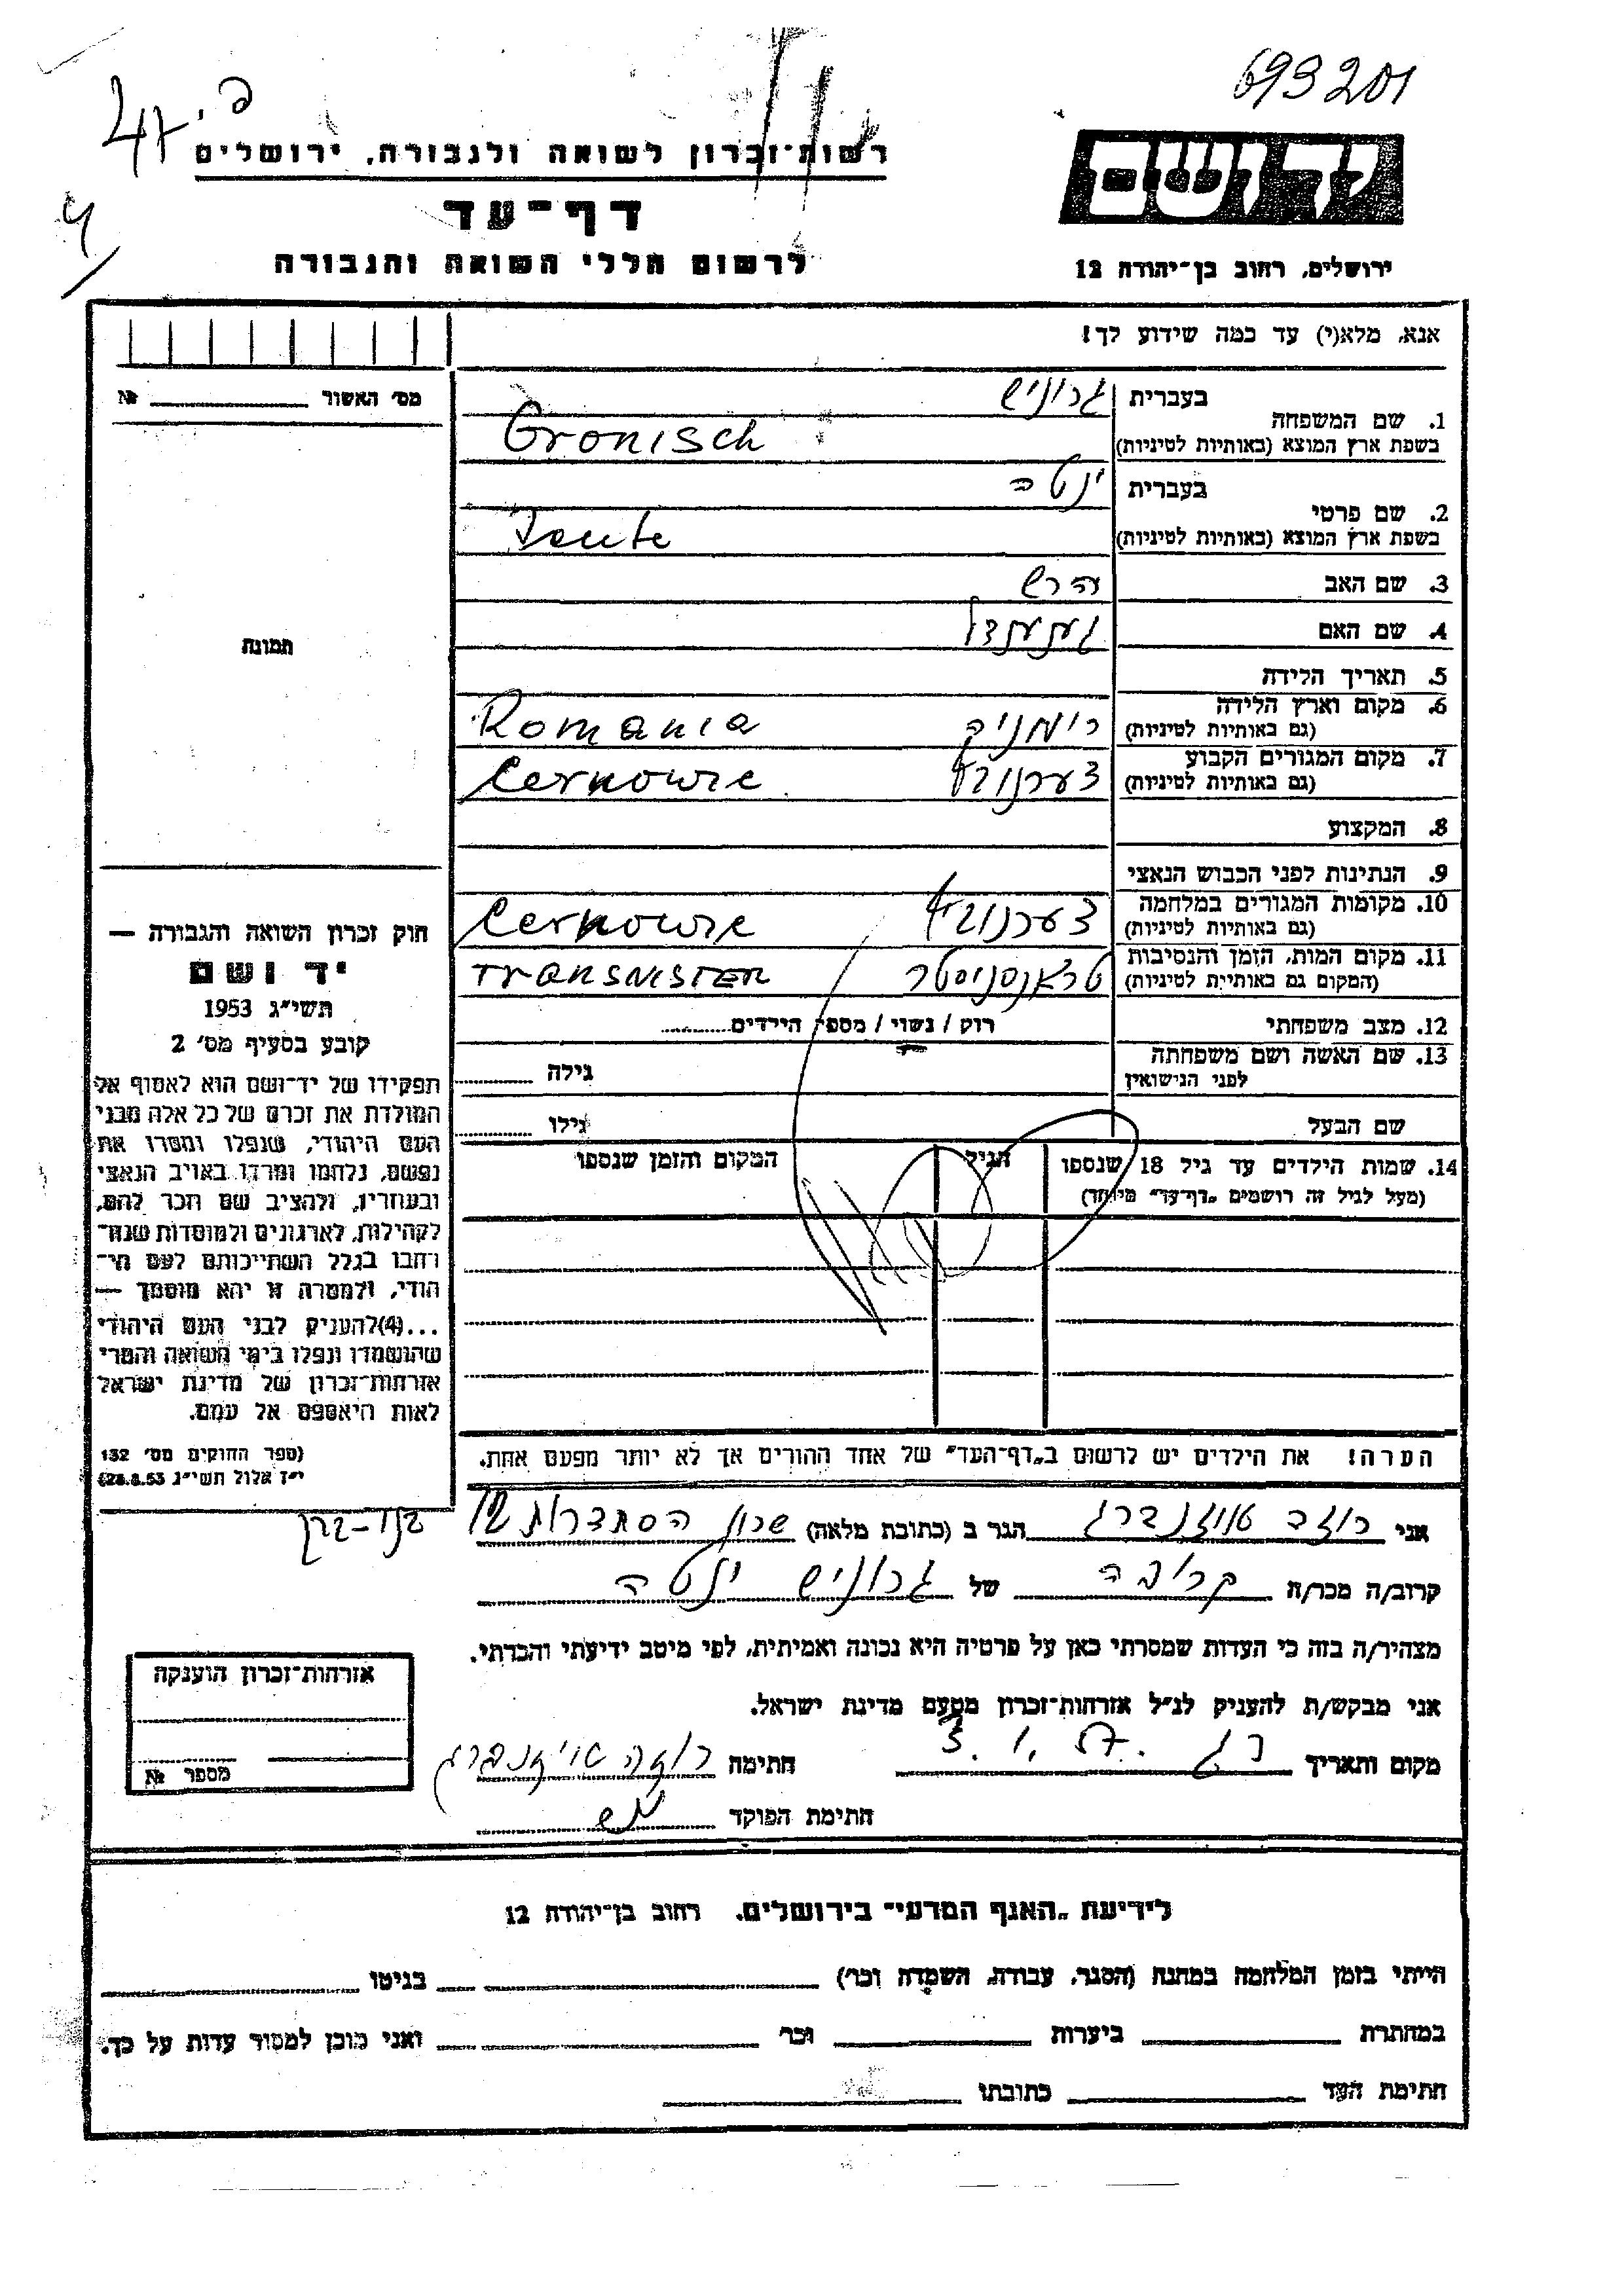 693201
47. פ.
רשות־זכרון לשואה ולגבורה, ירושלים
יד ושם
דף־עד
לרשום חללי השואה והגבורה
ירושלים, רחוב בן־יהודה 12
אנא, מלא(י) עד כמה שידוע לך!
מס' האשור №
1. שם המשפחה
בעברית גרוניש
בשפת ארץ המוצא (באותיות לטיניות) Gronisch
2. שם פרטי
בעברית ינטה
בשפת ארץ המוצא (באותיות לטיניות) Jente
3. שם האב הרש
4. שם האם
5. תאריך הלידה
6. מקום וארץ הלידה רימניק Romania
(גם באותיות לטיניות)
7. מקום המגורים הקבוע צערנוביץ Cernowie
(גם באותיות לטיניות)
8. המקצוע
9. הנתינות לפני הכבוש הנאצי
10. מקומות המגורים במלחמה צערנוביץ Cernowie
(גם באותיות לטיניות)
11. מקום המות, הזמן והנסיבות טראנסניסטר TRANSNISTER
(המקום גם באותיות לטיניות)
12. מצב משפחתי רוק / נשוי / מספר הילדים
13. שם האשה ושם משפחתה גילה
לפני הנישואין
שם הבעל גילו
14. שמות הילדים עד גיל 18 שנספו הגיל המקום והזמן שנספו
(מעל לגיל זה רושמים „דף־עד" מיוחד)
הערה! את הילדים יש לרשום ב„דף־העד" של אחד ההורים אך לא יותר מפעם אחת.
תמונה
חוק זכרון השואה והגבורה —
יד ושם
תשי"ג 1953
קובע בסעיף מס' 2
תפקידו של יד־ושם הוא לאסוף אל
המולדת את זכרם של כל אלה מבני
העם היהודי, שנפלו ומסרו את
נפשם, נלחמו ומרדו באויב הנאצי
ובעוזריו, ולהציב שם וזכר להם,
לקהילות, לארגונים ולמוסדות שנח־
רבו בגלל השתייכותם לעם הי־
הודי, ולמטרה זו יהא מוסמך —
...(4)להעניק לבני העם היהודי
שהושמדו ונפלו בימי השואה והמרי
אזרחות־זכרון של מדינת ישראל
לאות היאספם אל עמם.
(ספר החוקים מס' 132
י"ז אלול תשי"ג 28.8.53)
אני רוזה אייזנברג הגר ב (כתובת מלאה) שכון הסתדרות 12 בני-ברק
קרוב/ה מכר/ה קרובה של גרוניש ינטה
מצהיר/ה בזה כי העדות שמסרתי כאן על פרטיה היא נכונה ואמיתית, לפי מיטב ידיעתי והכרתי.
אני מבקש/ת להעניק לנ"ל אזרחות־זכרון מטעם מדינת ישראל.
מקום ותאריך רג 3. 1. 57. חתימה רוזה אייזנברג
חתימת הפוקד
אזרחות־זכרון הוענקה
מספר №
לידיעת „האגף המדעי" בירושלים. רחוב בן־יהודה 12
הייתי בזמן המלחמה במחנה (הסגר, עבודה, השמדה וכו') בגיטו
במחתרת ביערות וכו' ואני מוכן למסור עדות על כך.
חתימת העד כתובתו